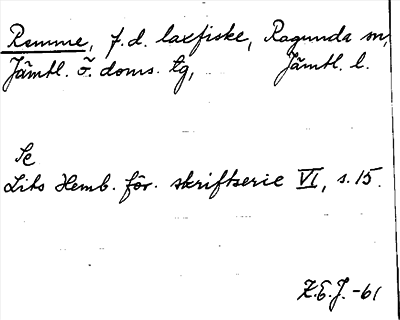 Remme, f.d. laxfiske, Ragunda sn,
Jämtl. ö. doms. tg, Jämtl. l.
Se
Lits Hemb. för. skriftserie VI, s. 15.
Z.E.J. -61